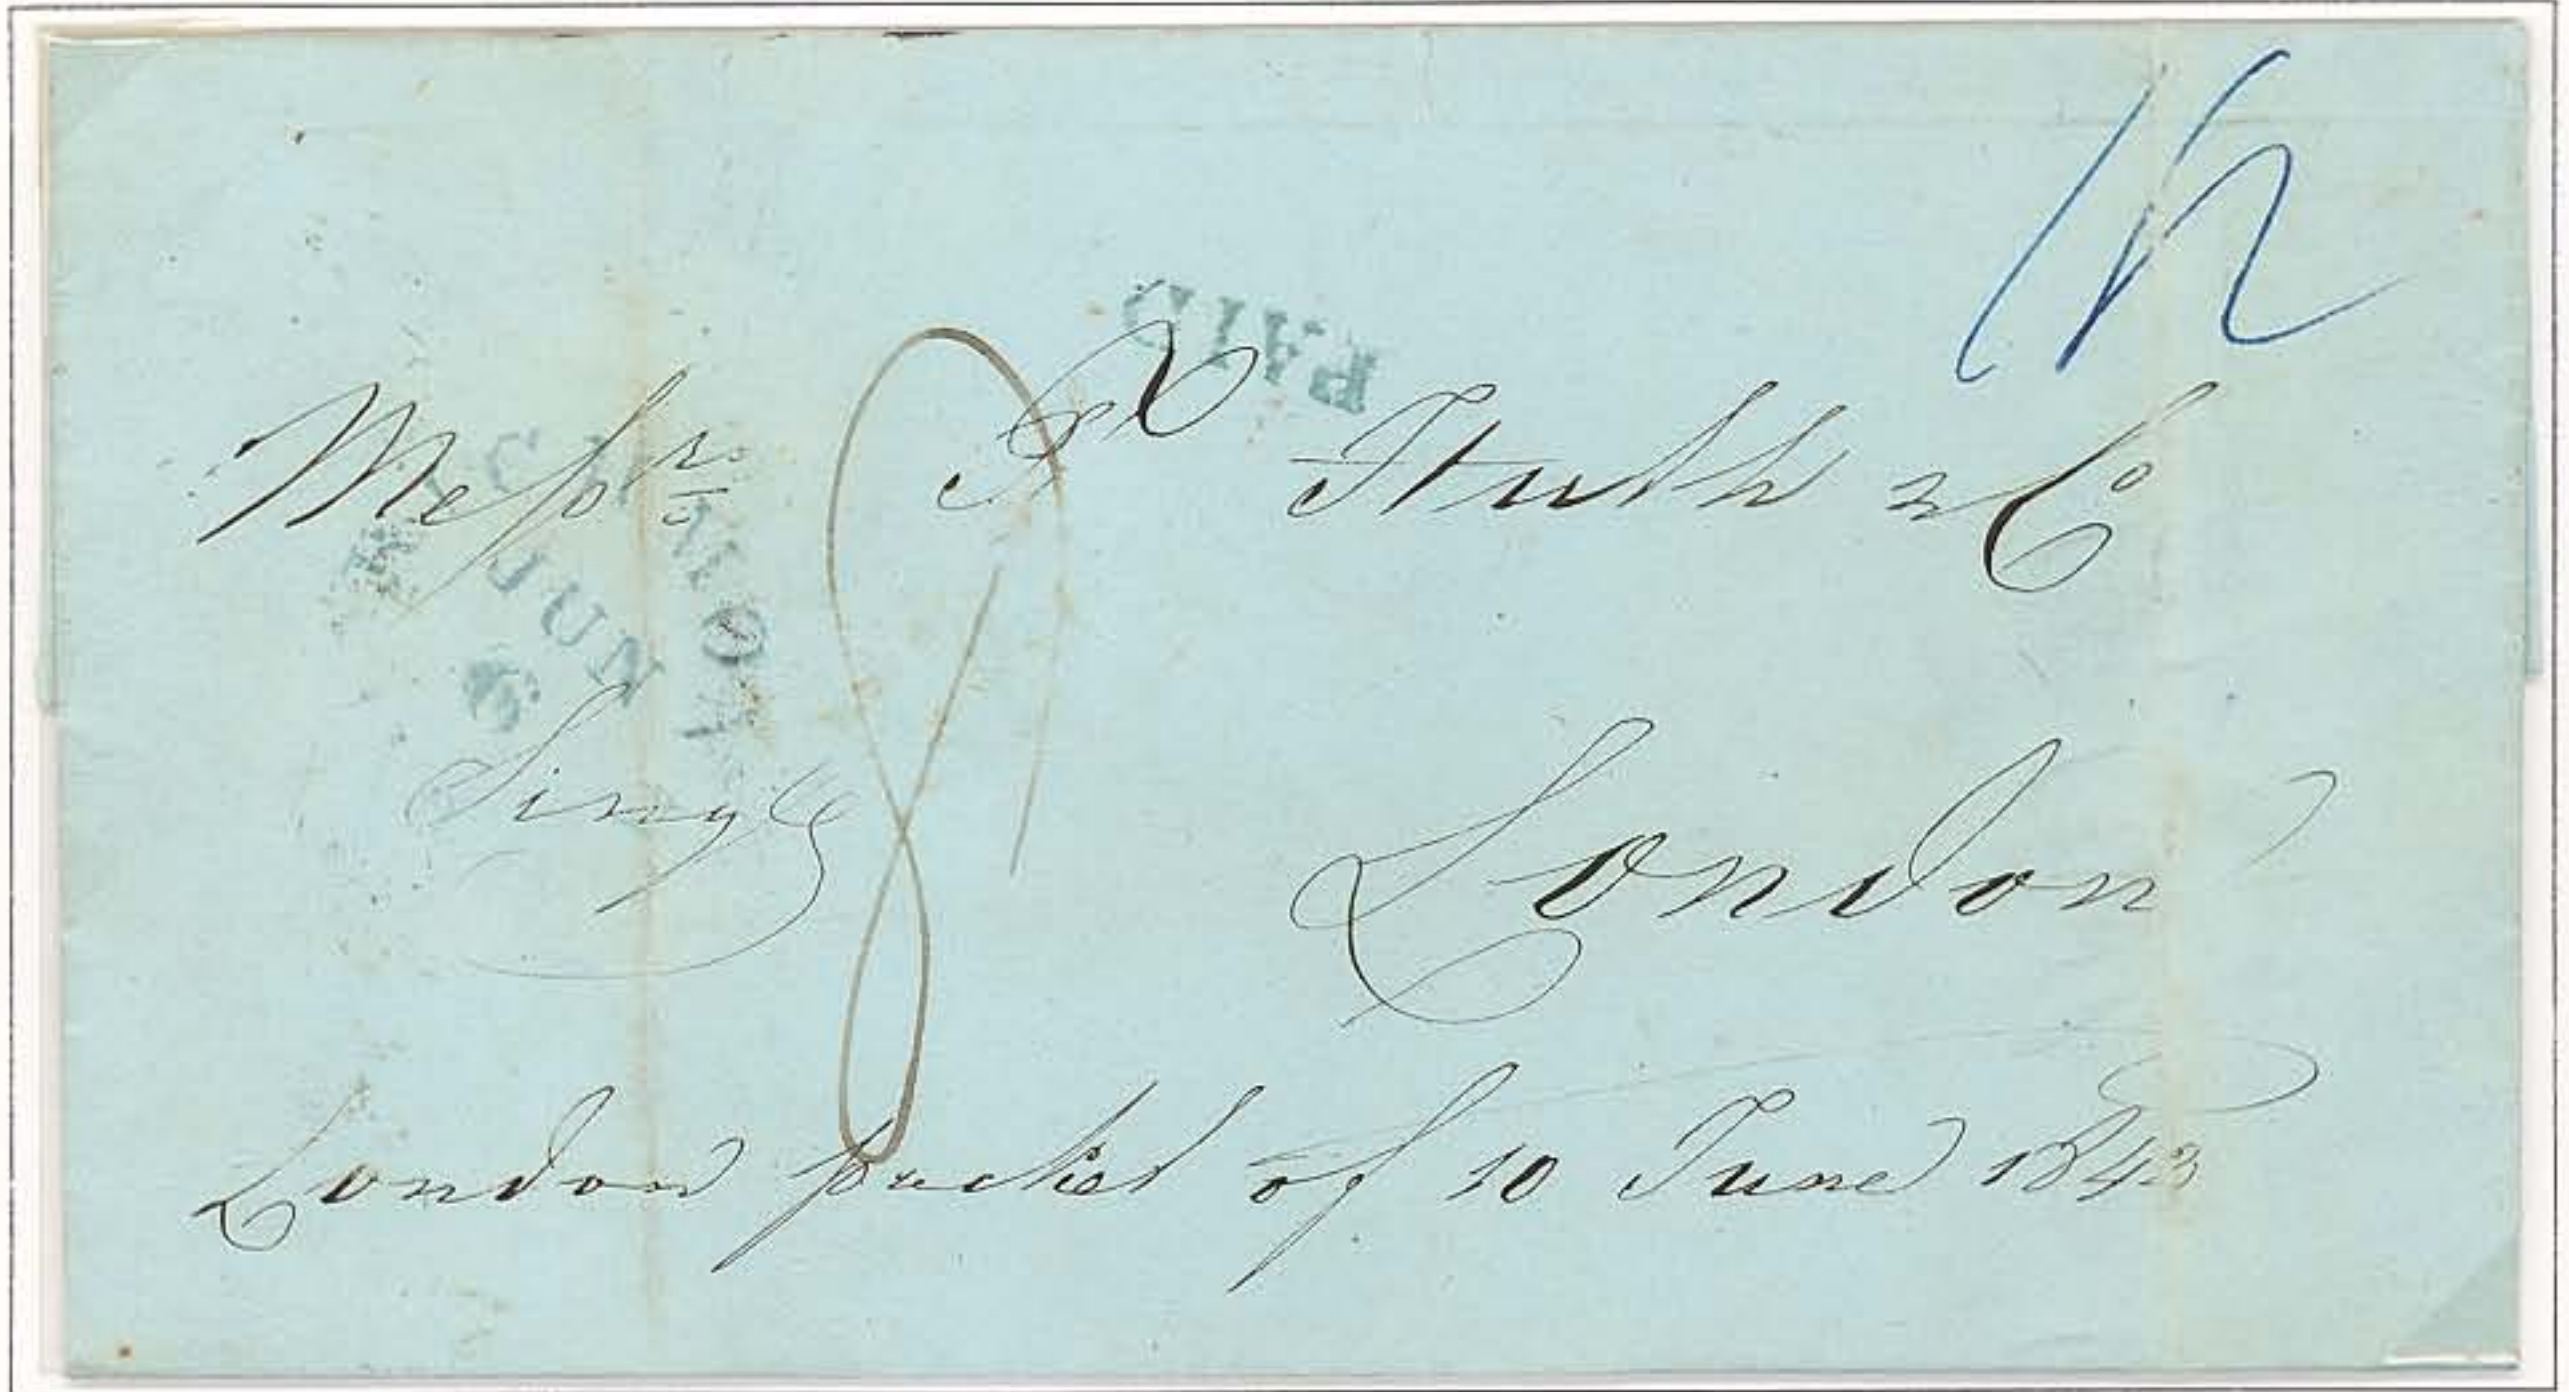 PAID
Messrs Fx Huth & Co
RICHMOND
JUN
Single
London
London packet of 10 June 1843